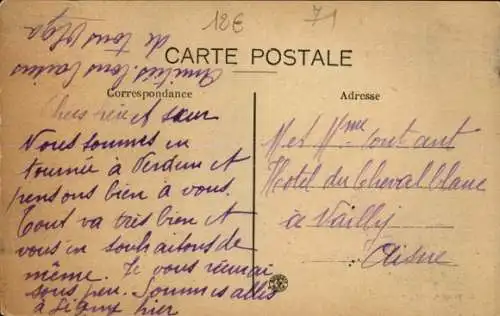 12€
71
CARTE POSTALE
Correspondance
Adresse
Chers père et sœur
Nous sommes en
tournée à Verdun et
pensons bien à vous.
Tout va très bien et
vous en souhaitons de
même. Je vous
sous peu. Sommes allés
à hier
Amitiés. Bons baisers
de tous Olga
M et Mme Contant
Hotel du Cheval blanc
à Vailly
Aisne